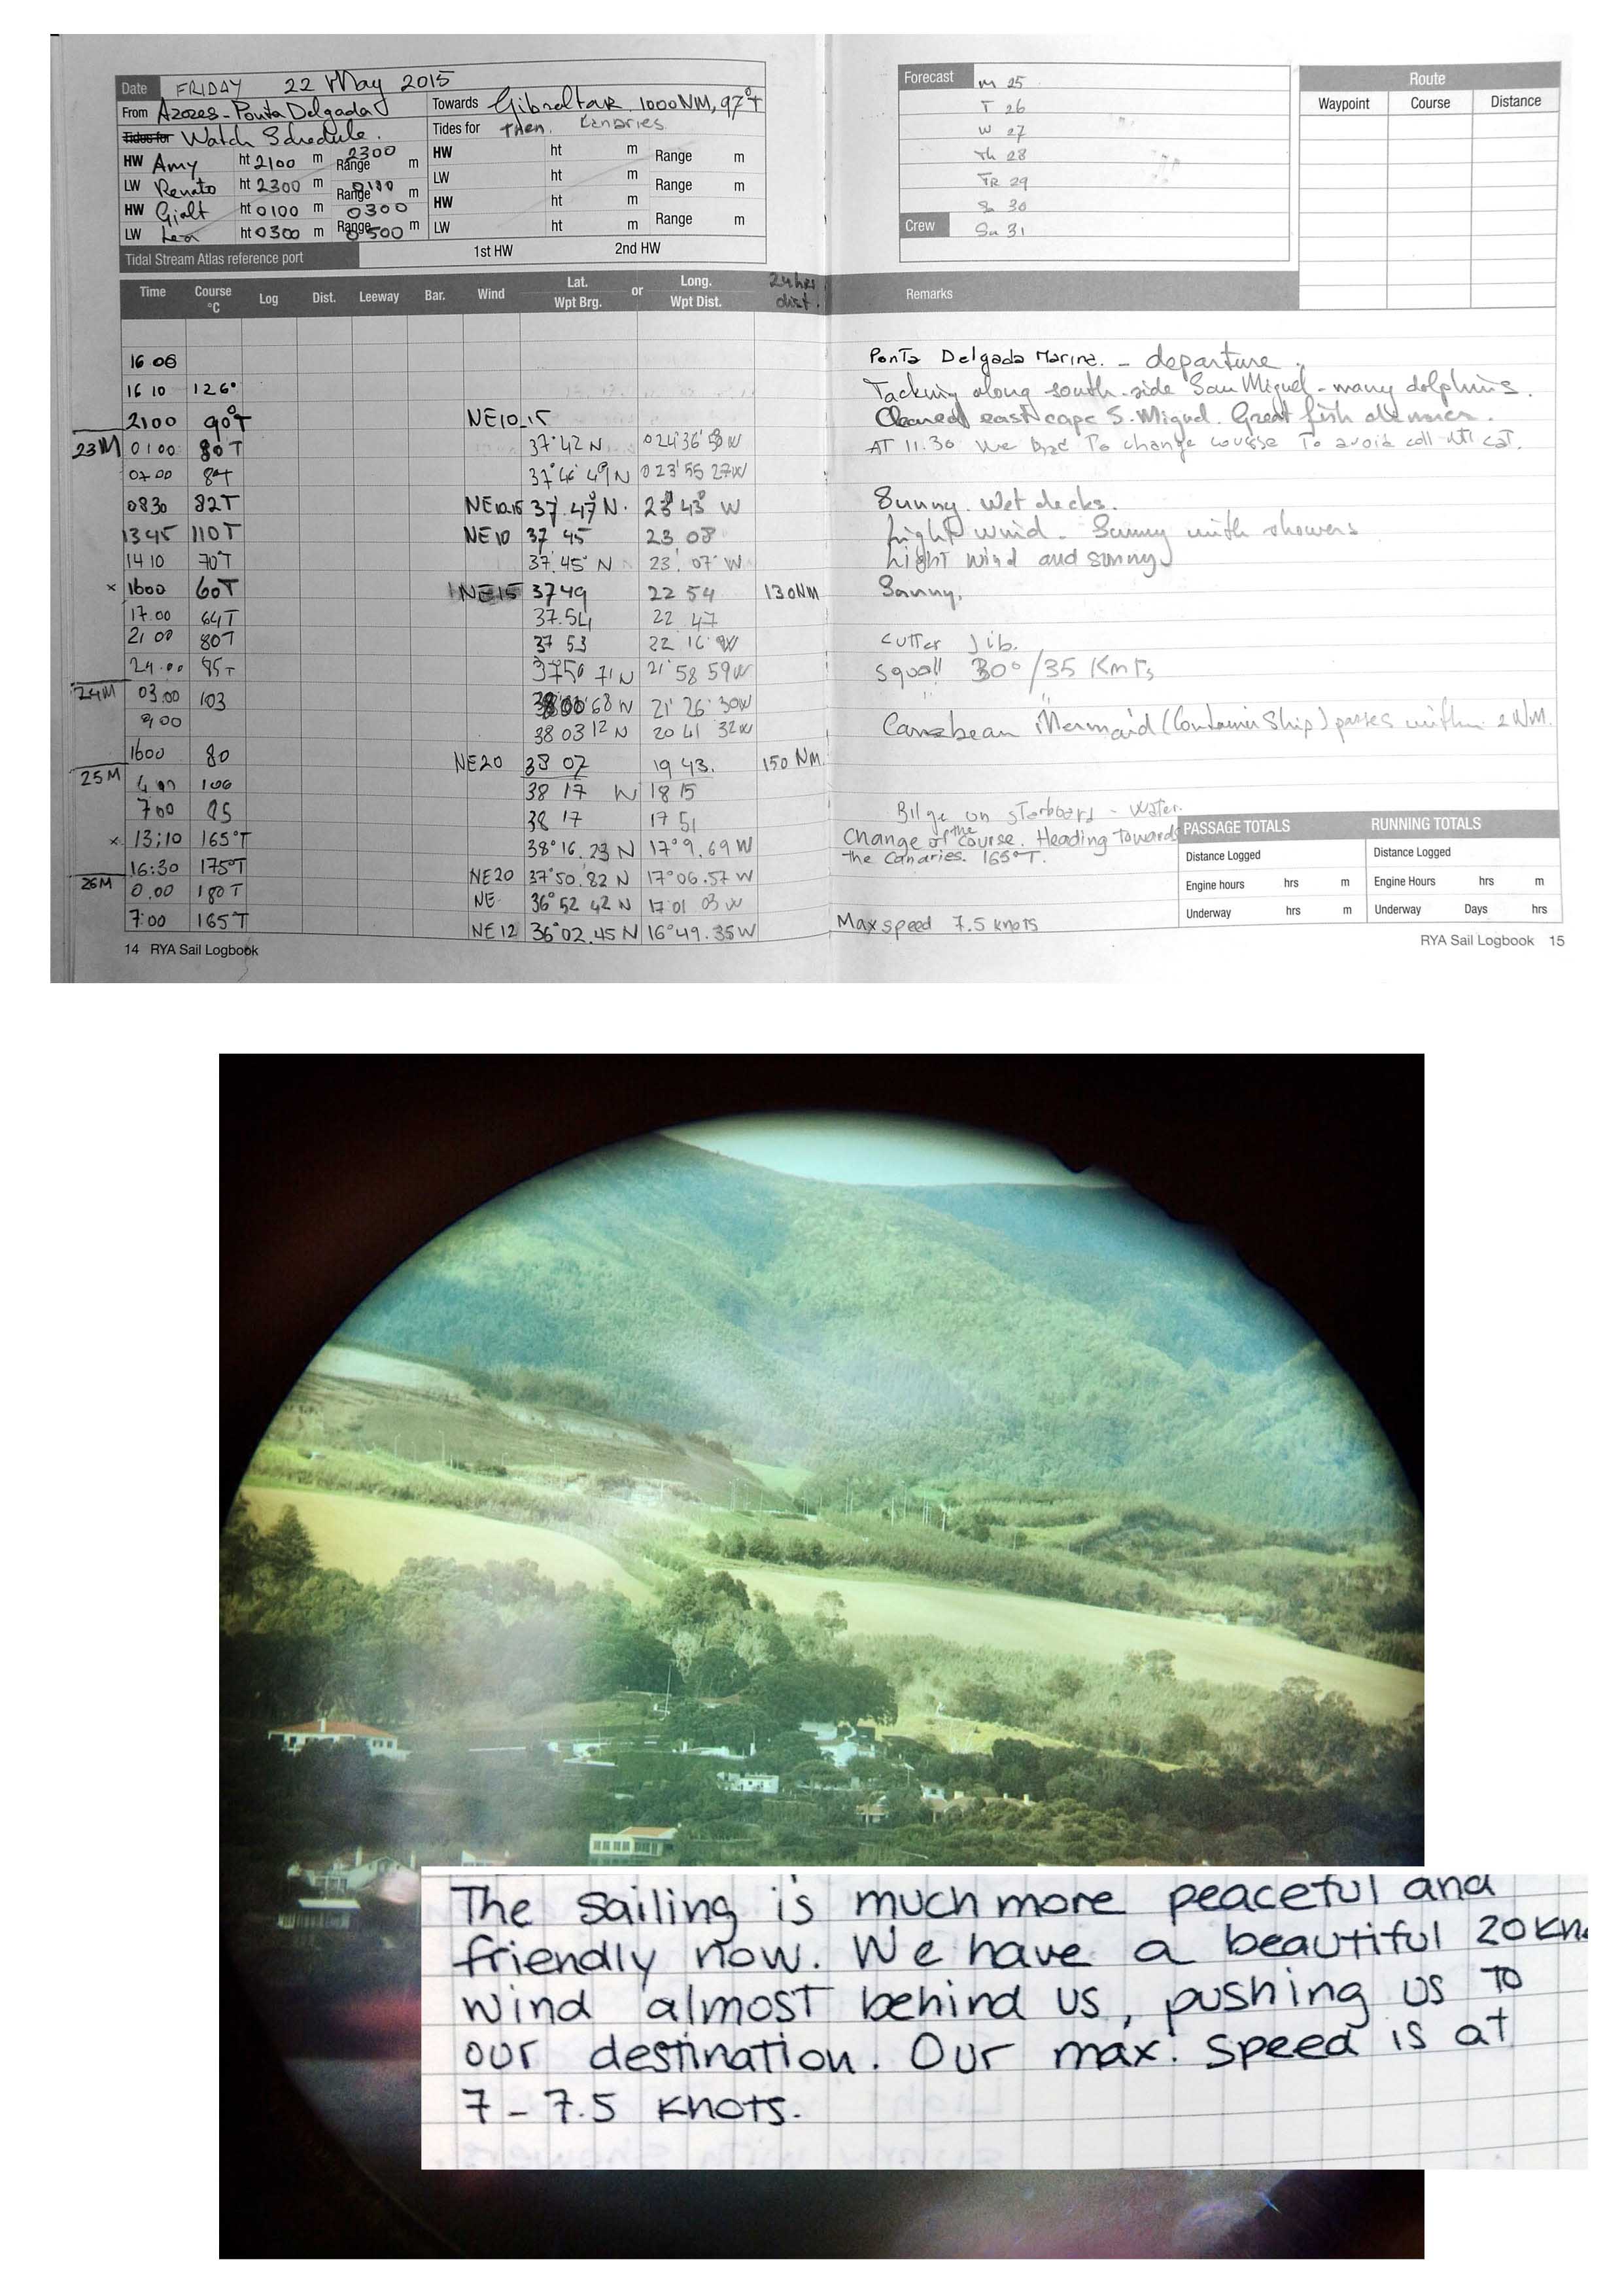 Date FRIDAY 22 May 2015
From Azores - Ponta Delgada Towards Gibraltar 1000NM, 97°T
Tides for Watch Schedule. Tides for Then. Canaries
HW Amy ht 2100 m Range 2300 m HW ht m Range m
LW Renato ht 2300 m Range 0100 m LW ht m Range m
HW Gjalt ht 0100 m 0300 HW ht m
LW ht 0300 m Range 0500 m LW ht m Range m
Tidal Stream Atlas reference port 1st HW 2nd HW
Forecast M 25
T 26
W 27
Th 28
FR 29
Sa 30
Crew Su 31
Route
Waypoint Course Distance
Time Course °C Log Dist. Leeway Bar. Wind Lat. Wpt Brg. or Long. Wpt Dist. 24hrs dist. Remarks
16 06 Ponta Delgada Marina. - departure.
16 10 126° Tacking along south-side San Miguel - many dolphins.
2100 90°T NE10.15 Cleared east cape S. Miguel. Great fish
23M 01:00 80T 37°42 N 024°36'50 W AT 11.30 we had To change course To avoid
07.00 84T 37°46 49 N 023°55 27W
0830 82T NE10.15 37.47 N. 23°43 W Sunny. Wet decks.
1345 110T NE10 37 45 23 08 Light wind - Sunny with showers
14 10 70°T 37.45' N 23'.07' W Light wind and sunny
x 1600 60T NE15 3749 22 54 130NM Sunny.
17.00 64T 37.54 22 47
21 00 80T 37 53 22 16 W cutter Jib.
24.00 85T 3750 71N 21°58 59W squall 30°/35 Knots
24M 03.00 103 68 N 21° 26' 30W " "
9,00 38 03 12 N 20 41 32W Caribbean Mermaid (Container Ship) passes within 2 NM.
1600 80 NE20 38 07 19 43. 150 NM.
25M 106 38 17 N 18 15
7 00 95 38 17 17 51 Bilge on starboard - water.
x 13:10 165°T 38°16.23 N 17°9.69 W Change of the course. Heading Towards
the Canaries. 165°T.
16:30 175°T NE20 37°50.82 N 17°06.57 W
26M 0.00 180T NE 36°52 42 N 17 01 03 W
7:00 165°T NE12 36°02.45 N 16°49.35W Max speed 7.5 knots
PASSAGE TOTALS RUNNING TOTALS
Distance Logged Distance Logged
Engine hours hrs m Engine Hours hrs m
Underway hrs m Underway Days hrs
14 RYA Sail Logbook RYA Sail Logbook 15
The sailing is much more peaceful and
friendly now. We have a beautiful 20
wind almost behind us, pushing us to
our destination. Our max. speed is at
7 - 7.5 knots.